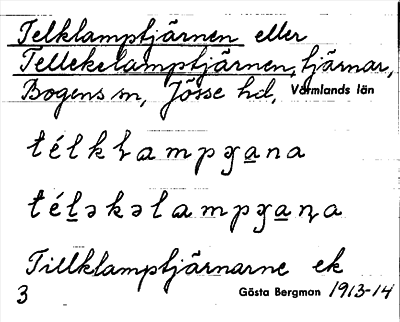 Telklamptjärnen eller
Tellekelamptjärnen, tjärnar,
Bogens sn, Jösse hd, Värmlands län
télkɫampɣa̲na
téḻəkəlampɣa̲ɳa
Tillklamptjärnarne ek
3 Gösta Bergman 1913-14